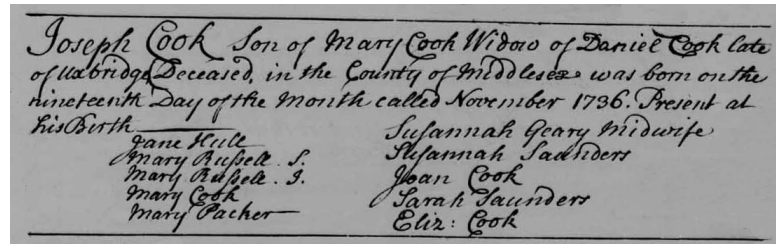 Joseph Cook Son of Mary Cook Widow of Daniel Cook late
of uxbridge Deceased, in the County of Middlesex was born on the
nineteenth Day of the Month called November 1736. Present at
his Birth
Jane Hull
Mary Russell . S.
Mary Russell . J.
Mary Cook
Mary Packer
Susannah Geary Midwife
Susannah Saunders
Joan Cook
Sarah Saunders
Eliz: Cook